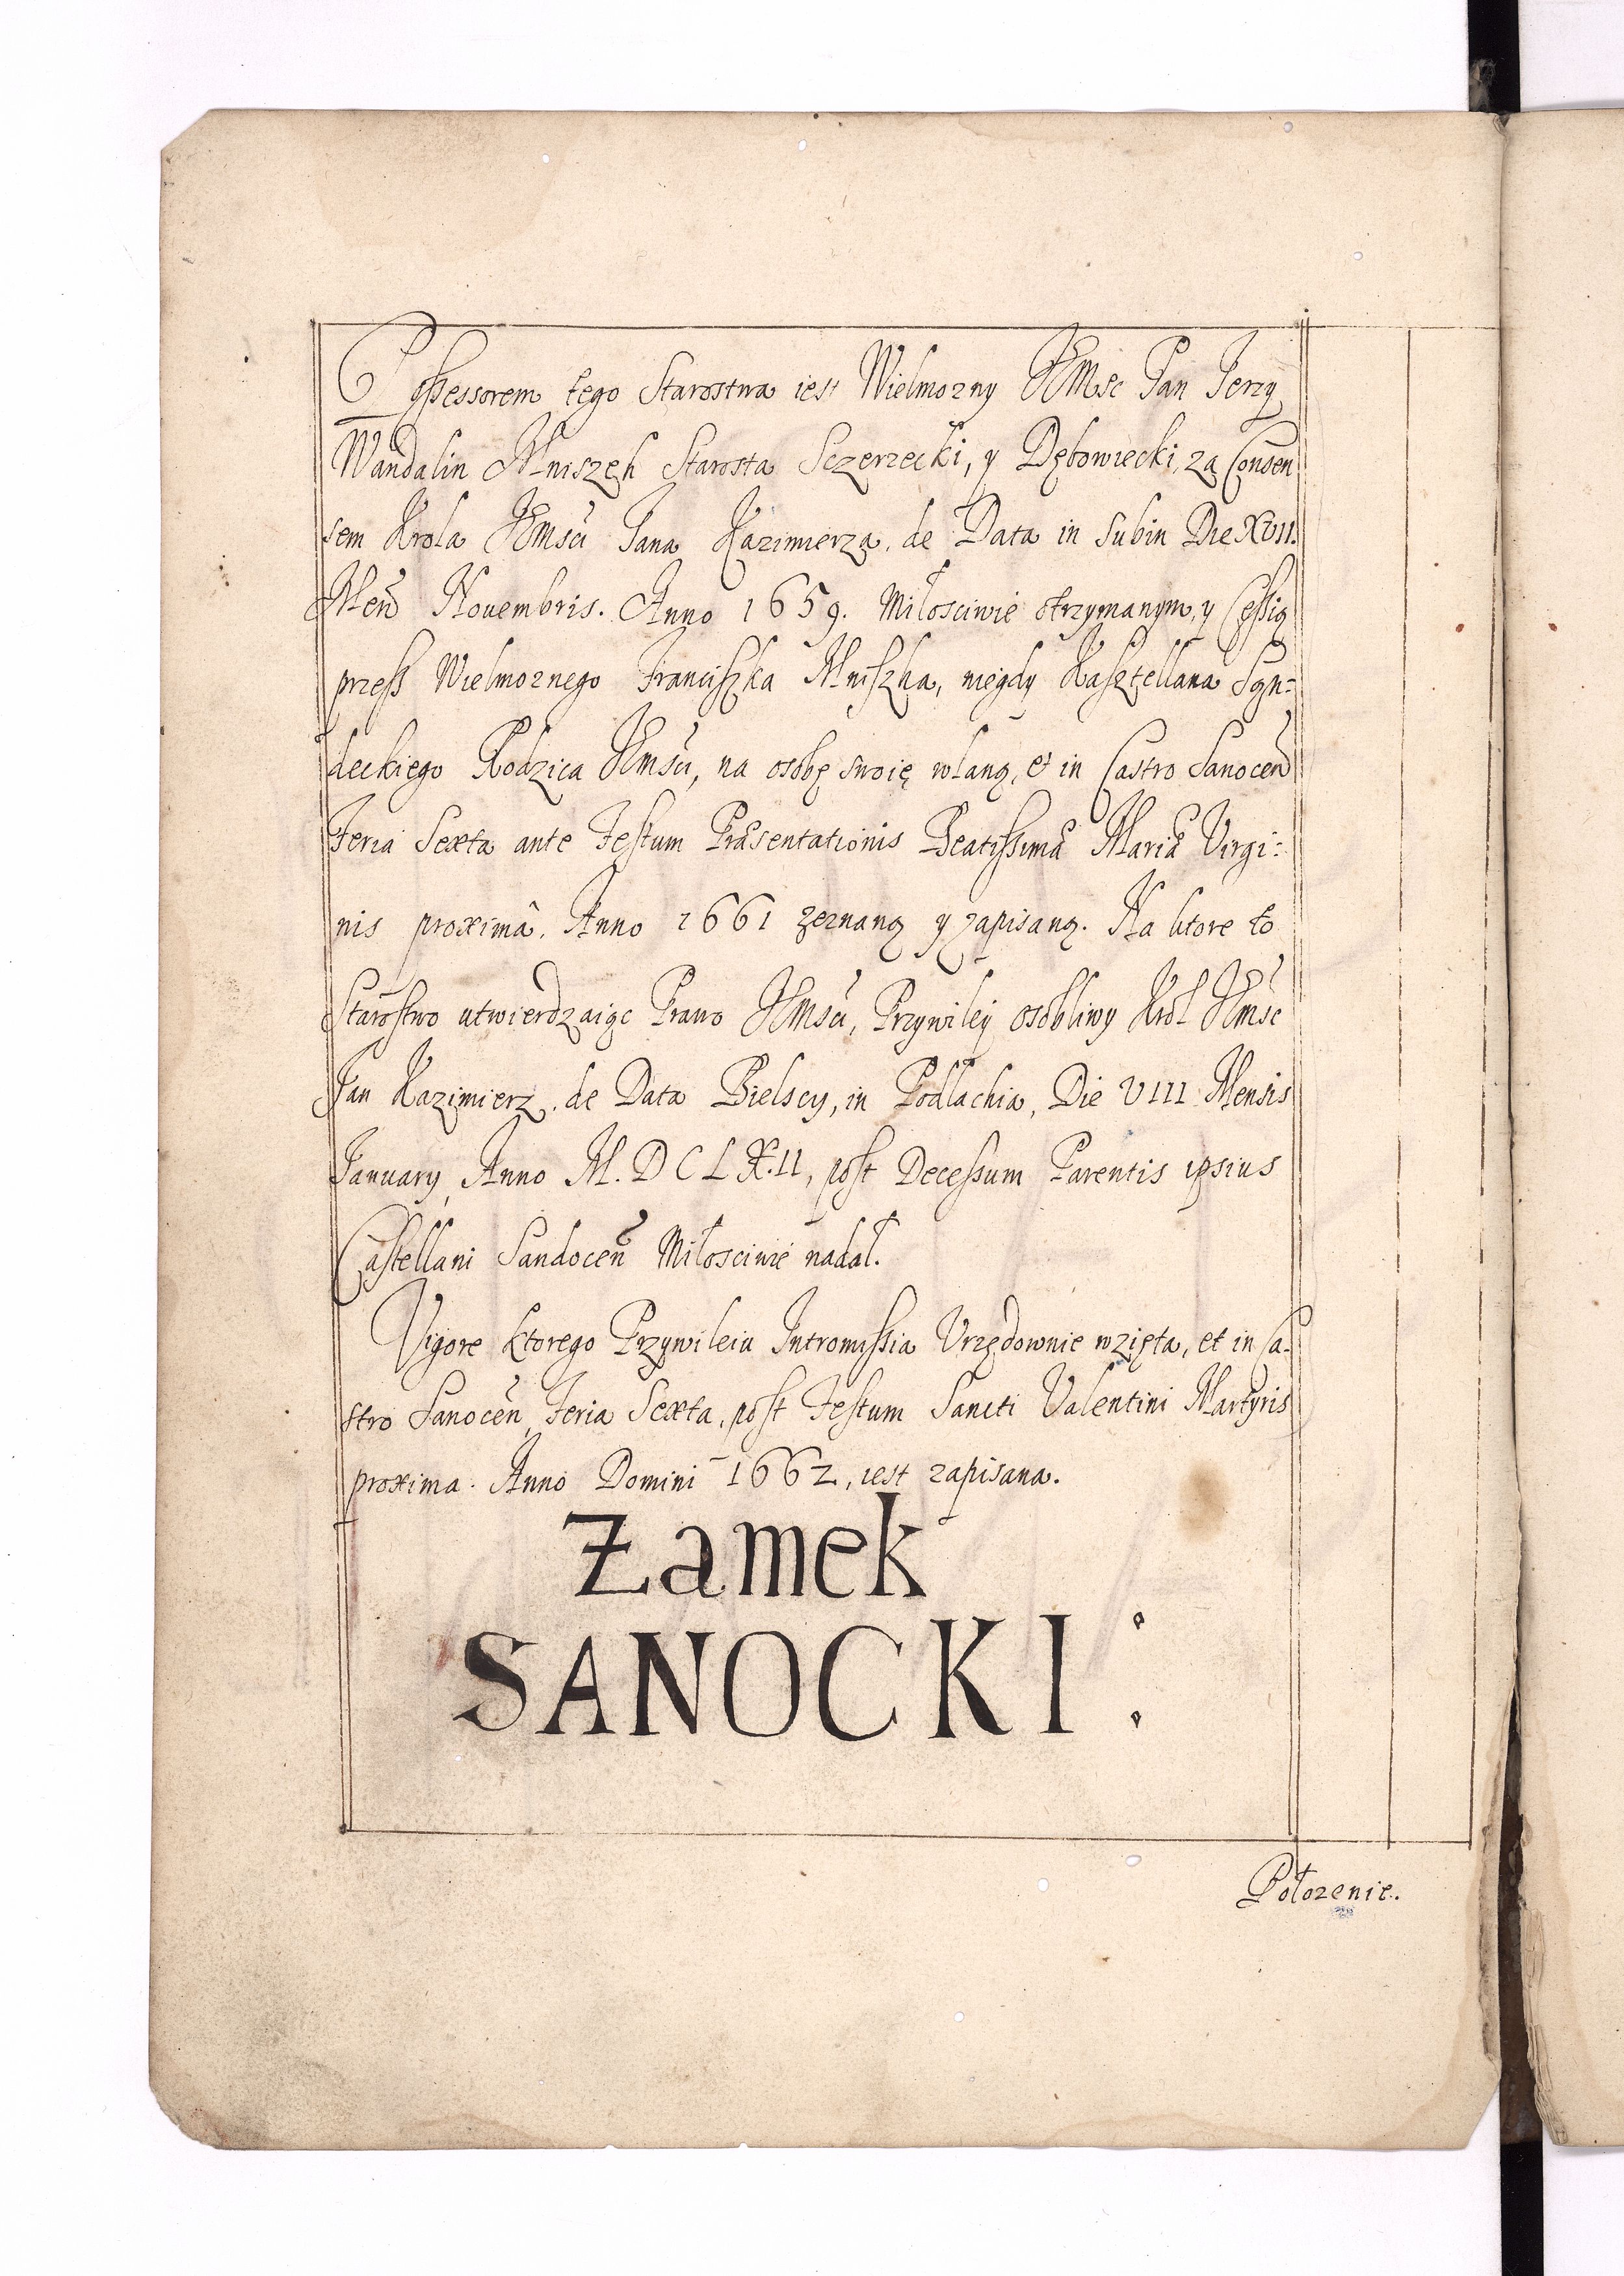 Possessorem tego Starostwa iest Wielmozny JEMsc Pan Jerzy
Wandalin Mniszęh Starosta Sczerzecki, y Dębowiecki, za Consen
sem Krola JEmsci Jana Kazimierza, de Data in Subin Die XVII.
Men̄ Nouembris. Anno 1659. Miłosciwie otrzymanym, y Cessią
przess Wielmoznego Franciszka Mniszka, niegdy Kasztellana Sąn=
deckiego Rodzica JEmsci, na osobę swoię wlaną, et in Castro Sanocen̄
Feria Sexta ante Festum Præsentationis Beatissimæ Mariæ Virgi:
nis proximâ. Anno 1661 zeznaną y zapisaną. Na ktore to
Starostwo utwierdzaiąc Prawo JEmsci, Przywiley osobliwy Krol JEmsc
Jan Kazimierz. de Data Bielscy, in Podlachia, Die VIII Mensis
January, Anno M.DCLX.II, post Decessum Parentis ipsius
Castellani Sandocen̄ Miłosciwie nadał.
Vigore ktorego Przywileiu Intromissia Vrzędownie wzięta, et in Ca-
stro Sanocen̄, Feria Sexta, post Festum Sancti Valentini Martyris
proxima. Anno Domini 1662, iest zapisana.
Zamek
SANOCKI:
Połozenie.